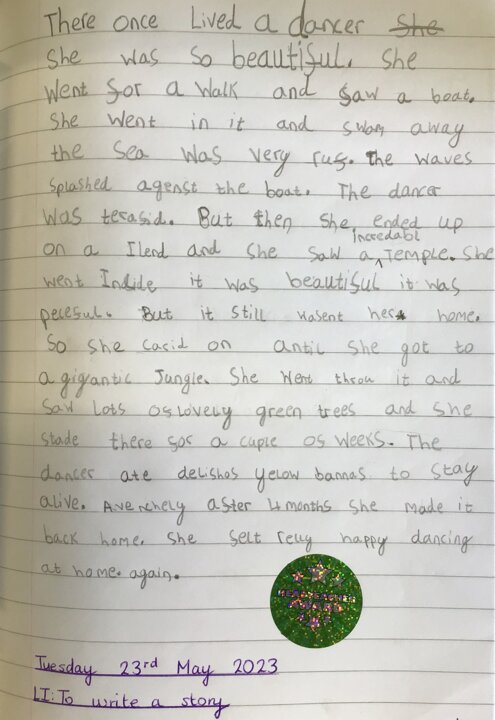 There once lived a dancer She
She was so beautiful. She
went for a walk and saw a boat.
She went in it and swam away
the sea was very ruf. the waves
splashed agenst the boat. The dancer
was terafid. But then she ended up
on a Ilend and she saw a incredabl Temple. She
went Indide it was beautiful it was
peceful. But it still wasent her home.
So she carid on antil she got to
a gigantic Jungle. She went throu it and
saw lots of lovely green trees and she
stade there for a cuple of weeks. The
dancer ate delishos yelow bannas to stay
alive. Avenchely after 4 months she made it
back home. She felt relly happy dancing
at home. again.
Tuesday 23rd May 2023
LI: To write a story